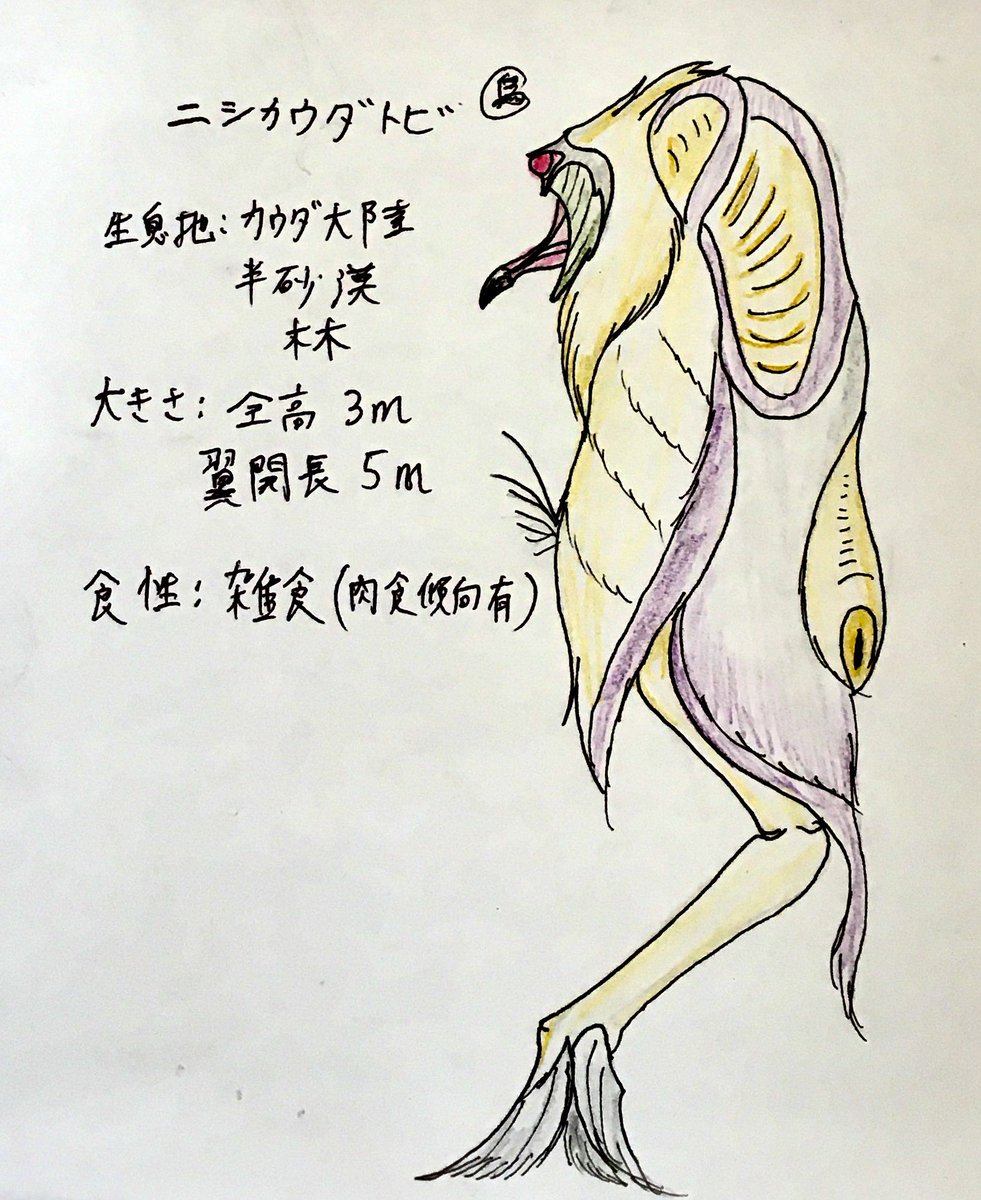 ニシカウダトビ 鳥
生息地：カウダ大陸
半砂漠
林
大きさ：全高 3m
翼開長 5m
食性：雑食(肉食傾向有)